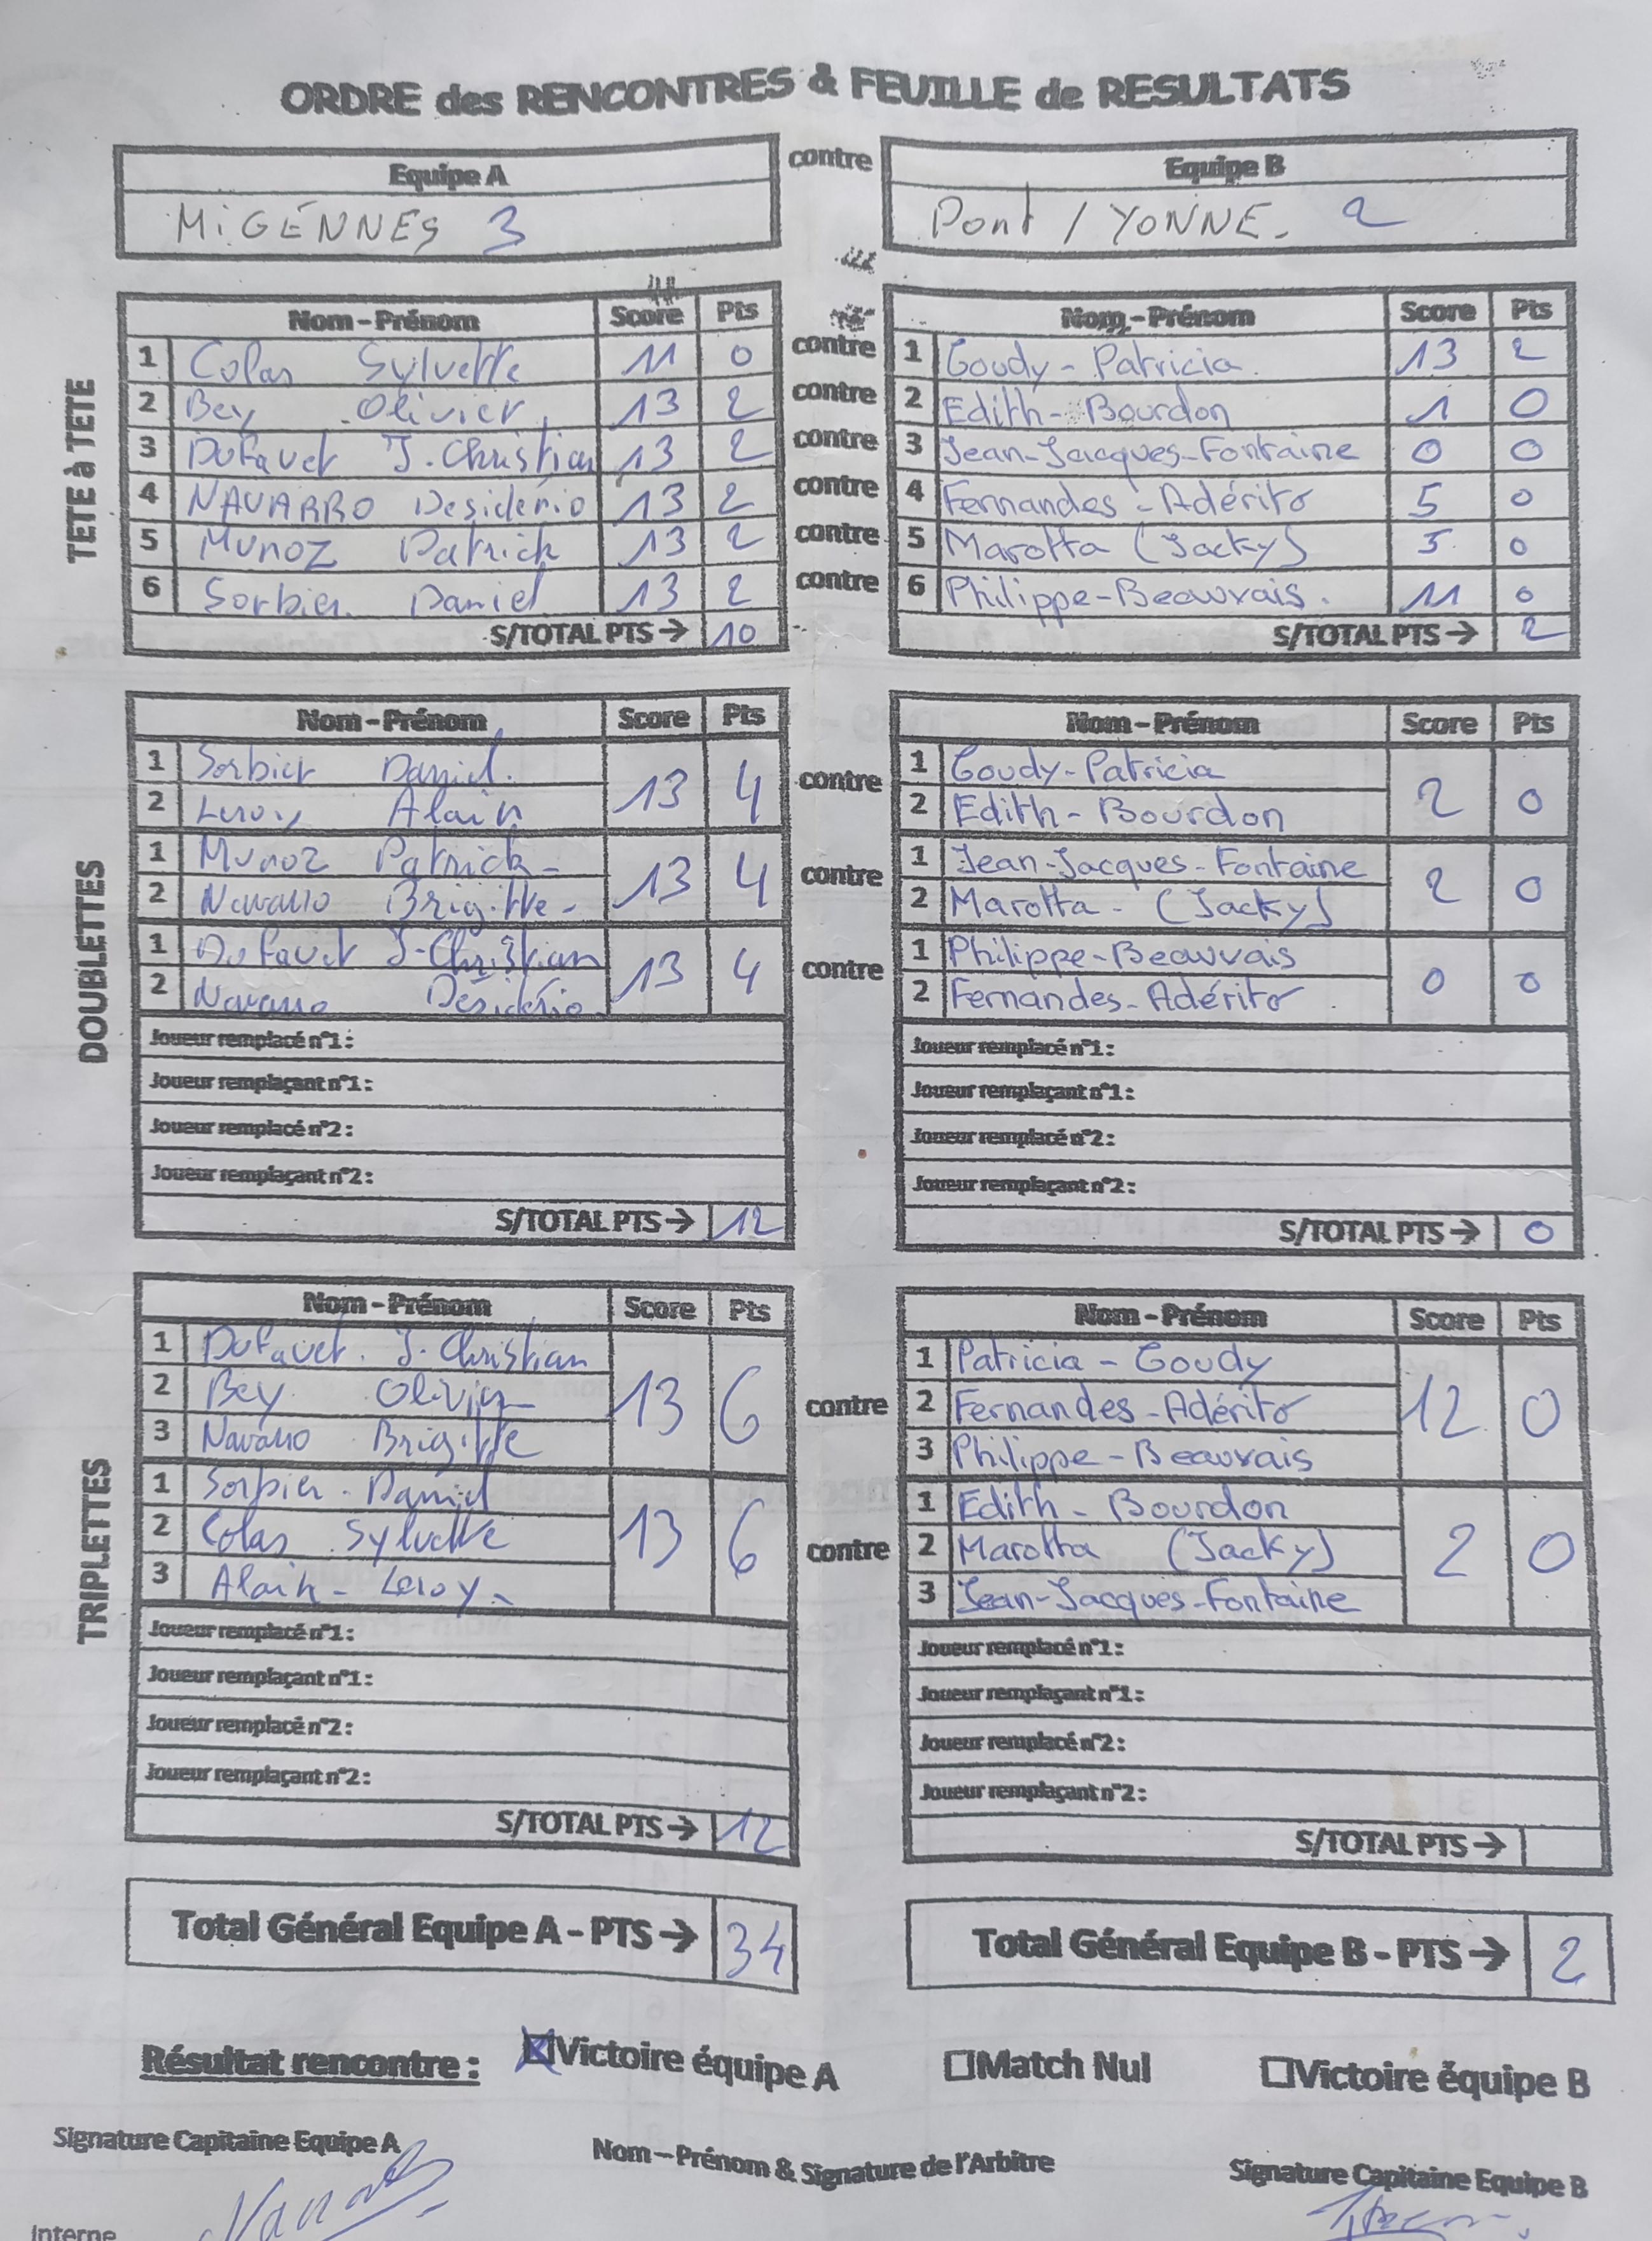 ORDRE des RENCONTRES & FEUILLE de RESULTATS
Equipe A contre Equipe B
MiGENNES 3 Pont / YONNE. 2
TETE à TETE
Nom - Prénom Score Pts Nom - Prénom Score Pts
1 Colas Sylvette 11 0 contre 1 Goudy - Patricia. 13 2
2 Bey Olivier 13 2 contre 2 Edith - Bourdon 1 0
3 Dufauet J. Christian 13 2 contre 3 Jean-Jacques-Fontaine 0 0
4 NAVARRO Desiderio 13 2 contre 4 Fernandes - Adérito 5 0
5 Munoz Patrick 13 2 contre 5 Marotta (Jacky) 5 0
6 Sorbier Daniel 13 2 contre 6 Philippe-Beauvais. 11 0
S/TOTAL PTS → 10 S/TOTAL PTS → 2
DOUBLETTES
Nom - Prénom Score Pts Nom - Prénom Score Pts
1 Sorbier Daniel. 13 4 contre 1 Goudy-Patricia 2 0
2 Leroy Alain 2 Edith - Bourdon
1 Munoz Patrick - 13 4 contre 1 Jean-Jacques-Fontaine 2 0
2 Navarro Brigitte - 2 Marotta - (Jacky)
1 Dufauet J-Christian 13 4 contre 1 Philippe-Beauvais 0 0
2 Navarro Désidério 2 Fernandes-Adérito
Joueur remplacé n°1 : Joueur remplacé n°1 :
Joueur remplaçant n°1 : Joueur remplaçant n°1 :
Joueur remplacé n°2 : Joueur remplacé n°2 :
Joueur remplaçant n°2 : Joueur remplaçant n°2 :
S/TOTAL PTS → 12 S/TOTAL PTS → 0
TRIPLETTES
Nom - Prénom Score Pts Nom - Prénom Score Pts
1 Dufauet. J. Christian 13 6 contre 1 Patricia - Goudy 12 0
2 Bey Olivier 2 Fernandes-Adérito
3 Navarro Brigitte 3 Philippe-Beauvais
1 Sorbier - Daniel 13 6 contre 1 Edith - Bourdon 2 0
2 Colas Sylvette 2 Marotta (Jacky)
3 Alain - Leroy - 3 Jean-Jacques-Fontaine
Joueur remplacé n°1 : Joueur remplacé n°1 :
Joueur remplaçant n°1 : Joueur remplaçant n°1 :
Joueur remplacé n°2 : Joueur remplacé n°2 :
Joueur remplaçant n°2 : Joueur remplaçant n°2 :
S/TOTAL PTS → 12 S/TOTAL PTS →
Total Général Equipe A - PTS → 34 Total Général Equipe B - PTS → 2
Résultat rencontre : Victoire équipe A Match Nul Victoire équipe B
Signature Capitaine Equipe A Nom – Prénom & Signature de l'Arbitre Signature Capitaine Equipe B
Interne